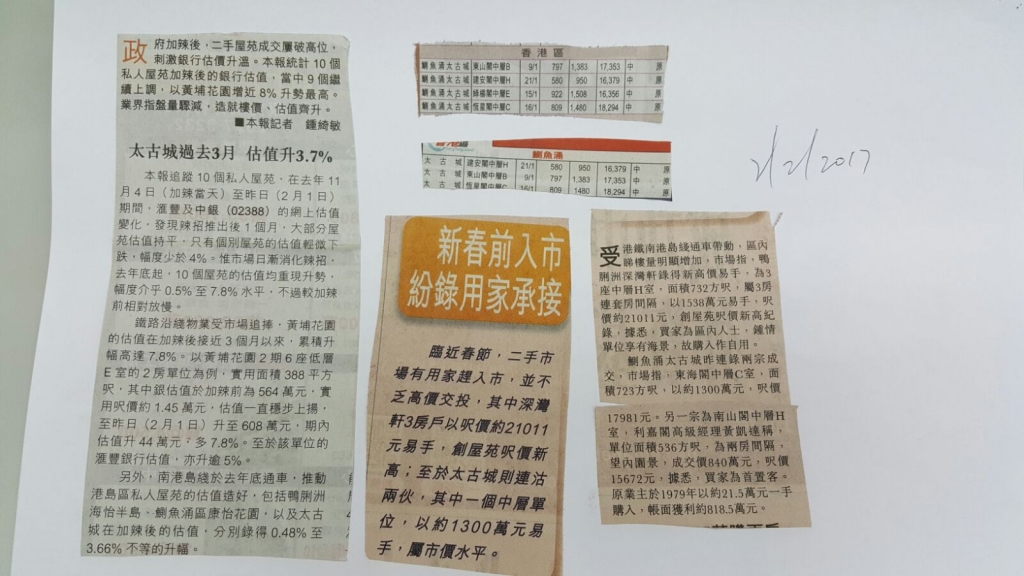 政府加辣後，二手屋苑成交屢破高位，
刺激銀行估價升溫。本報統計10個
私人屋苑加辣後的銀行估值，當中9個繼
續上調，以黃埔花園增近8%升勢最高。
業界指盤量驟減，造就樓價、估值齊升。
■本報記者 鍾綺敏
太古城過去3月 估值升3.7%
本報追蹤10個私人屋苑，在去年11
月4日（加辣當天）至昨日（2月1日）
期間，滙豐及中銀（02388）的網上估值
變化，發現辣招推出後1個月，大部分屋
苑估值持平，只有個別屋苑的估值輕微下
跌，幅度少於4%。惟市場日漸消化辣招，
去年底起，10個屋苑的估值均重現升勢，
幅度介乎0.5%至7.8%水平，不過較加辣
前相對放慢。
鐵路沿綫物業受市場追捧，黃埔花園
的估值在加辣後接近3個月以來，累積升
幅高達7.8%。以黃埔花園2期6座低層
E室的2房單位為例，實用面積388平方
呎，其中銀估值於加辣前為564萬元，實
用呎價約1.45萬元，估值一直穩步上揚，
至昨日（2月1日）升至608萬元，期內
估值升44萬元，多7.8%。至於該單位的
滙豐銀行估值，亦升逾5%。
另外，南港島綫於去年底通車，推動
港島區私人屋苑的估值造好，包括鴨脷洲
海怡半島、鰂魚涌區康怡花園，以及太古
城在加辣後的估值，分別錄得0.48%至
3.66%不等的升幅。
香港區
鰂魚涌太古城 東山閣中層B 9/1 797 1,383 17,353 中原
鰂魚涌太古城 建安閣中層H 21/1 580 950 16,379 中原
鰂魚涌太古城 綠楊閣中層E 15/1 922 1,508 16,356 中原
鰂魚涌太古城 恆星閣中層C 16/1 809 1,480 18,294 中原
鰂魚涌
太古城 建安閣中層H 21/1 580 950 16,379 中原
太古城 東山閣中層B 9/1 797 1,383 17,353 中原
太古城 恆星閣中層C 16/1 809 1480 18,294 中原
2/2/2017
新春前入市
紛錄用家承接
臨近春節，二手市
場有用家趕入市，並不
乏高價交投，其中深灣
軒3房戶以呎價約21011
元易手，創屋苑呎價新
高；至於太古城則連沽
兩伙，其中一個中層單
位，以約1300萬元易
手，屬市價水平。
受港鐵南港島綫通車帶動，區內
睇樓量明顯增加，市場指，鴨
脷洲深灣軒錄得新高價易手，為3
座中層H室，面積732方呎，屬3房
連套房間隔，以1538萬元易手，呎
價約21011元，創屋苑呎價新高紀
錄，據悉，買家為區內人士，鍾情
單位享有海景，故購入作自用。
鰂魚涌太古城昨連錄兩宗成
交，市場指，東海閣中層C室，面
積723方呎，以約1300萬元，呎價
17981元。另一宗為南山閣中層H
室，利嘉閣高級經理黃凱達稱，
單位面積536方呎，為兩房間隔，
望內園景，成交價840萬元，呎價
15672元，據悉，買家為首置客。
原業主於1979年以約21.5萬元一手
購入，帳面獲利約818.5萬元。